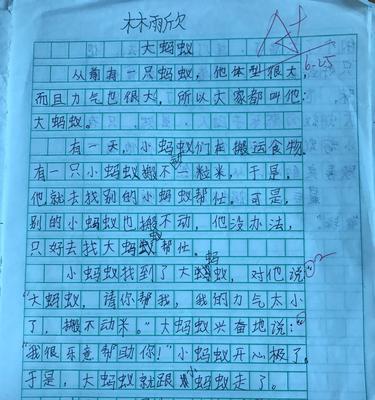 林雨欣
A+
6-25
大蚂蚁
从前有一只蚂蚁，他体型很大，
而且力气也很大，所以大家都叫他：
大蚂蚁。
有一天，小蚂蚁们在搬运食物。
有一只小蚂蚁搬不动一粒米，于是，
他就去找别的小蚂蚁帮忙，可是，
别的小蚂蚁也搬不动，他没办法，
只好去找大蚂蚁帮忙。
小蚂蚁找到了大蚂蚁，对他说：
“大蚂蚁，请你帮我，我的力气太小
了，搬不动米。”大蚂蚁兴奋地说：
“我很乐意帮助你！”小蚂蚁开心极了。
于是，大蚂蚁就跟小蚂蚁走了。